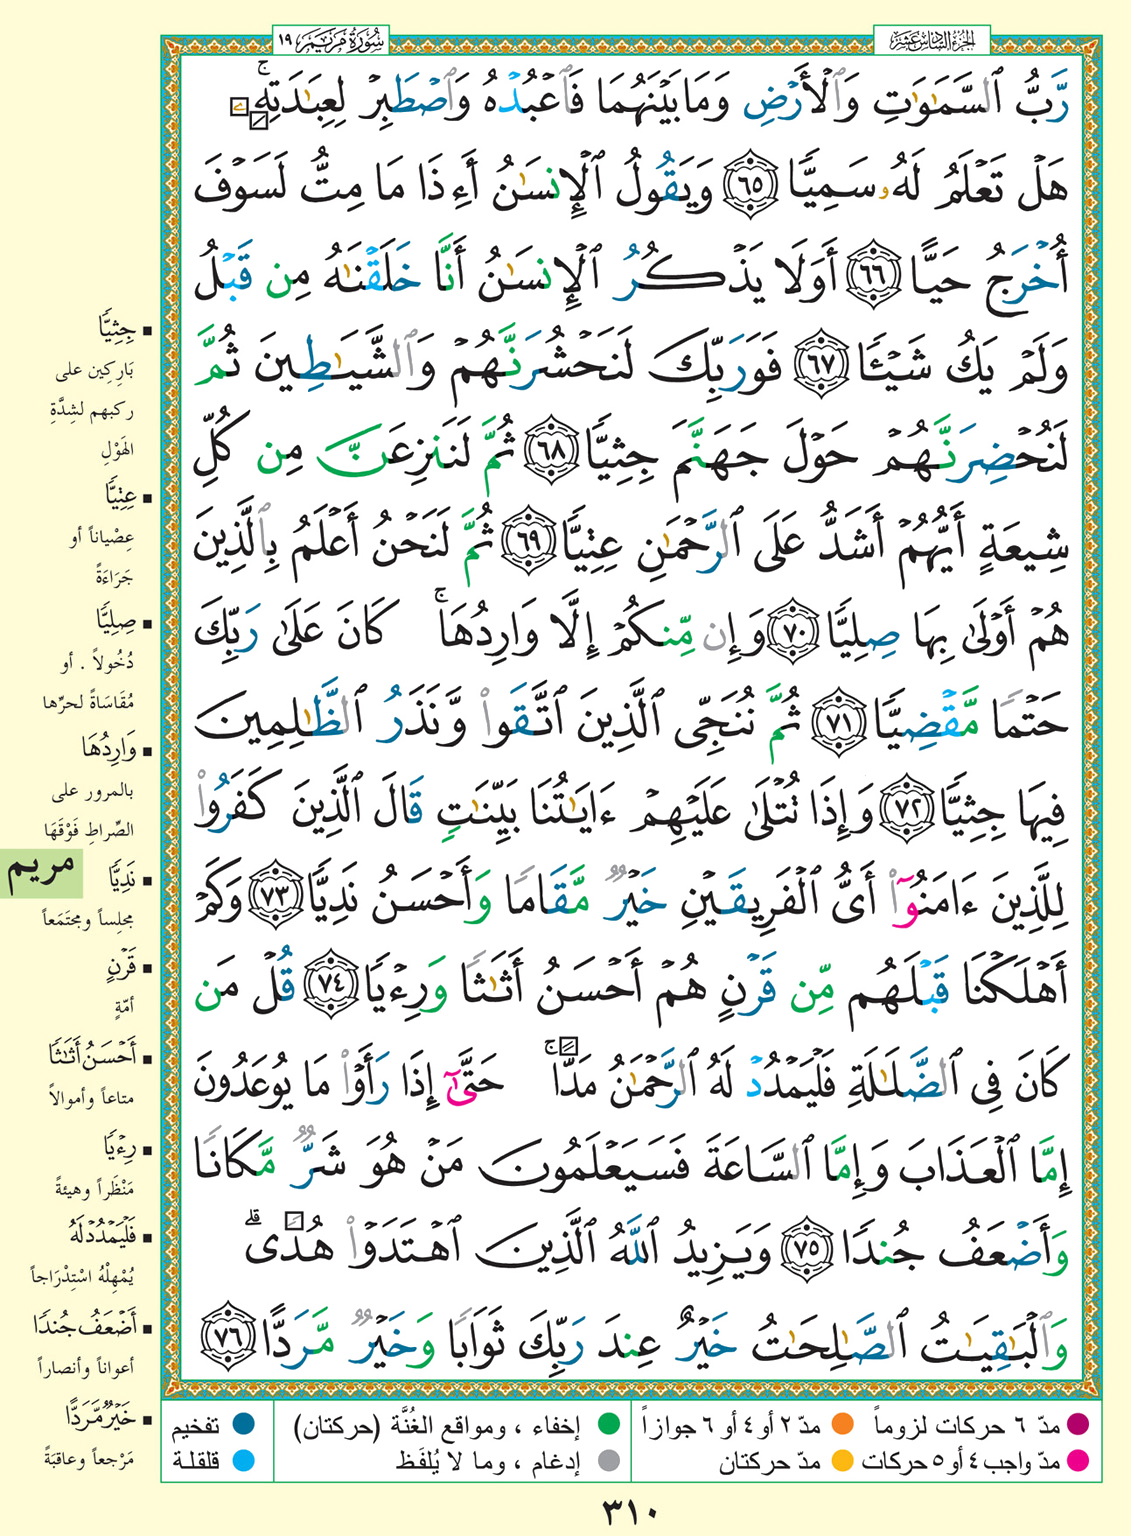 الجزء السادس عشر
سورة مريم ١٩
رَّبُّ ٱلسَّمَٰوَٰتِ وَٱلْأَرْضِ وَمَا بَيْنَهُمَا فَٱعْبُدْهُ وَٱصْطَبِرْ لِعِبَٰدَتِهِۦ ۚ
هَلْ تَعْلَمُ لَهُۥ سَمِيًّا ٦٥ وَيَقُولُ ٱلْإِنسَٰنُ أَءِذَا مَا مِتُّ لَسَوْفَ
أُخْرَجُ حَيًّا ٦٦ أَوَلَا يَذْكُرُ ٱلْإِنسَٰنُ أَنَّا خَلَقْنَٰهُ مِن قَبْلُ
وَلَمْ يَكُ شَيْـًٔا ٦٧ فَوَرَبِّكَ لَنَحْشُرَنَّهُمْ وَٱلشَّيَٰطِينَ ثُمَّ
لَنُحْضِرَنَّهُمْ حَوْلَ جَهَنَّمَ جِثِيًّا ٦٨ ثُمَّ لَنَنزِعَنَّ مِن كُلِّ
شِيعَةٍ أَيُّهُمْ أَشَدُّ عَلَى ٱلرَّحْمَٰنِ عِتِيًّا ٦٩ ثُمَّ لَنَحْنُ أَعْلَمُ بِٱلَّذِينَ
هُمْ أَوْلَىٰ بِهَا صِلِيًّا ٧٠ وَإِن مِّنكُمْ إِلَّا وَارِدُهَا ۚ كَانَ عَلَىٰ رَبِّكَ
حَتْمًا مَّقْضِيًّا ٧١ ثُمَّ نُنَجِّى ٱلَّذِينَ ٱتَّقَوا۟ وَّنَذَرُ ٱلظَّٰلِمِينَ
فِيهَا جِثِيًّا ٧٢ وَإِذَا تُتْلَىٰ عَلَيْهِمْ ءَايَٰتُنَا بَيِّنَٰتٍ قَالَ ٱلَّذِينَ كَفَرُوا۟
لِلَّذِينَ ءَامَنُوٓا۟ أَىُّ ٱلْفَرِيقَيْنِ خَيْرٌ مَّقَامًا وَأَحْسَنُ نَدِيًّا ٧٣ وَكَمْ
أَهْلَكْنَا قَبْلَهُم مِّن قَرْنٍ هُمْ أَحْسَنُ أَثَٰثًا وَرِءْيًا ٧٤ قُلْ مَن
كَانَ فِى ٱلضَّلَٰلَةِ فَلْيَمْدُدْ لَهُ ٱلرَّحْمَٰنُ مَدًّا ۚ حَتَّىٰٓ إِذَا رَأَوْا۟ مَا يُوعَدُونَ
إِمَّا ٱلْعَذَابَ وَإِمَّا ٱلسَّاعَةَ فَسَيَعْلَمُونَ مَنْ هُوَ شَرٌّ مَّكَانًا
وَأَضْعَفُ جُندًا ٧٥ وَيَزِيدُ ٱللَّهُ ٱلَّذِينَ ٱهْتَدَوْا۟ هُدًى ۗ
وَٱلْبَٰقِيَٰتُ ٱلصَّٰلِحَٰتُ خَيْرٌ عِندَ رَبِّكَ ثَوَابًا وَخَيْرٌ مَّرَدًّا ٧٦
جِثِيًّا
بَارِكِين على
ركبهم لشِدَّةِ
الهَوْلِ
عِتِيًّا
عِصْياناً أو
جَرَاءَةً
صِلِيًّا
دُخُولاً . أو
مُقَاسَاةً لحرِّها
وَارِدُهَا
بالمرور على
الصِّراطِ فَوْقَهَا
مريم
نَدِيًّا
مجلِساً ومجتَمَعاً
قَرْنٍ
أمّةٍ
أَحْسَنُ أَثَٰثًا
متاعاً وأموالاً
رِءْيًا
مَنْظَراً وهيئةً
فَلْيَمْدُدْ لَهُ
يُمْهِلْهُ اسْتِدْرَاجاً
أَضْعَفُ جُندًا
أعواناً وأنصاراً
خَيْرٌ مَّرَدًّا
مَرْجعاً وعاقبَةً
مدّ ٦ حركات لزوماً
مدّ ٢ أو ٤ أو ٦ جوازاً
إخفاء ، ومواقع الغُنَّة (حركتان)
تفخيم
مدّ واجب ٤ أو ٥ حركات
مدّ حركتان
إدغام ، وما لا يُلفَظ
قلقلة
٣١٠